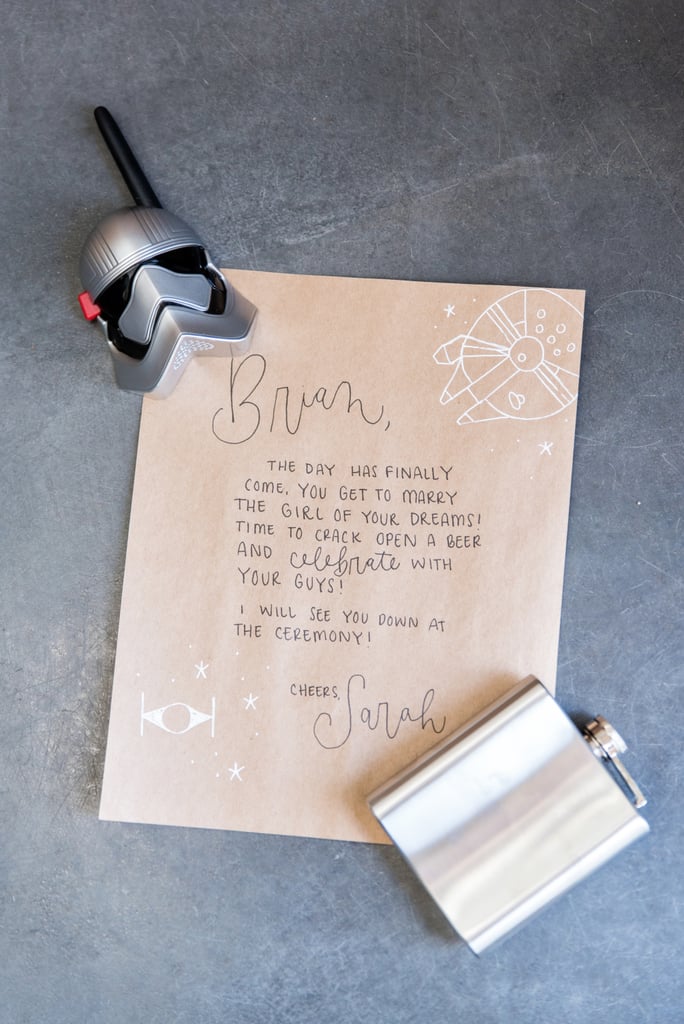 Brian,
THE DAY HAS FINALLY
COME. YOU GET TO MARRY
THE GIRL OF YOUR DREAMS!
TIME TO CRACK OPEN A BEER
AND celebrate WITH
YOUR GUYS!
I WILL SEE YOU DOWN AT
THE CEREMONY!
CHEERS, Sarah